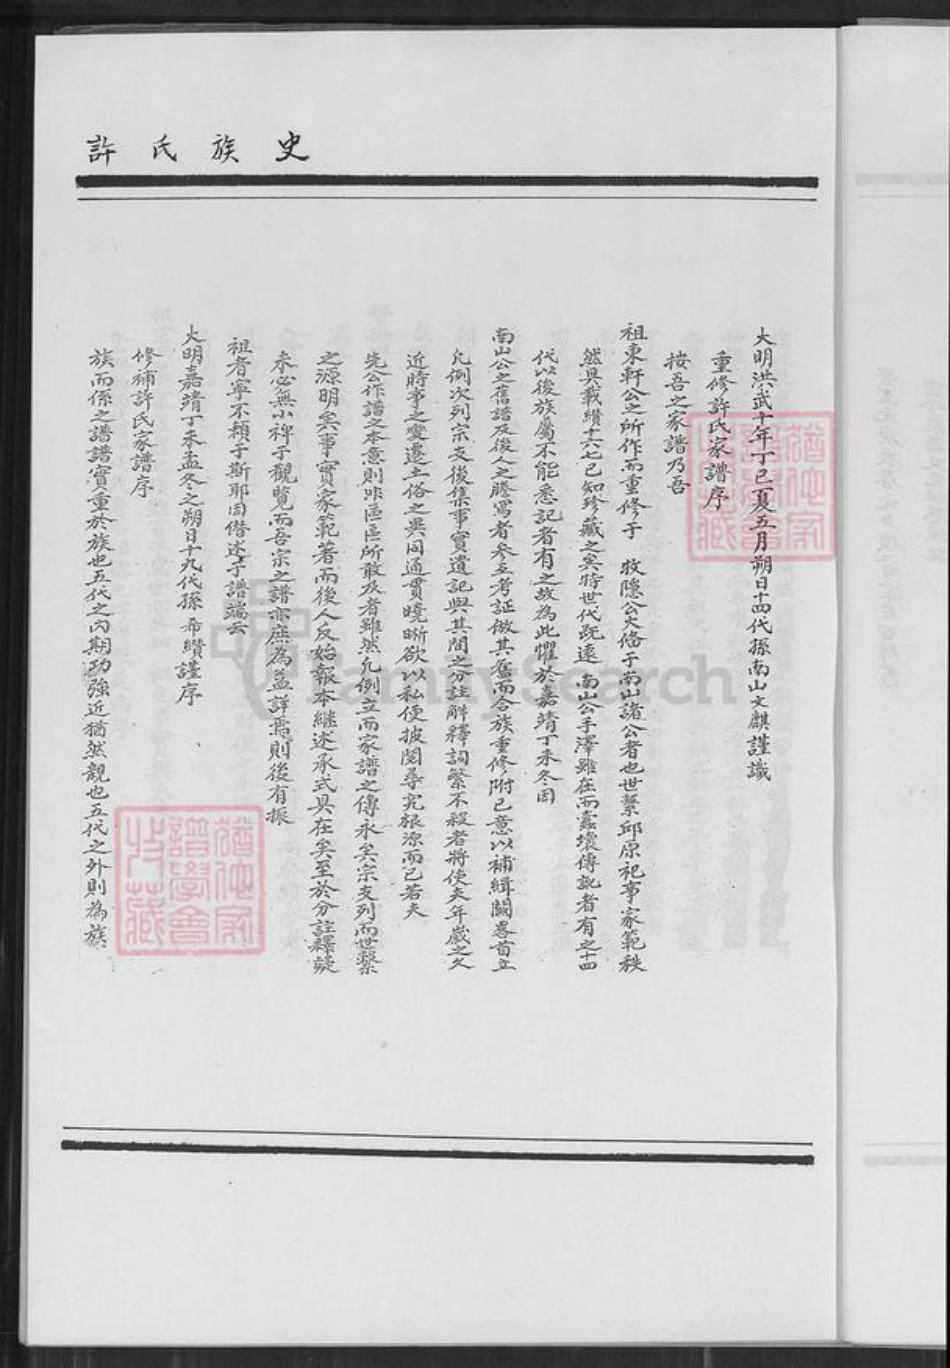 許氏族史
大明洪武十年丁巳夏五月朔日十四代孫南山文麒謹識
重修許氏家譜序
按吾之家譜乃吾
祖東軒公之所作而重修于 牧隱公大俻于南山諸公者也世繫邱原祀事家範秩
然具載續十六七已知珍藏之矣時世代既遠 南山公手澤雖在而蠹壞傳訛者有之十四
代以後族屬不能悉記者有之故為此懼於嘉靖丁未冬因
南山公之舊譜及後人之謄寫者參互考証倣其舊而合族重修附已意以補緝闕畧首立
凡例次列宗支後集事實遺記與其間之分註解釋詞繁不殺者將使夫年歲之久
近時事之變遷土俗之異同通貫曉晰欲以私便披閱尋究根源而已若夫
先公作譜之本意則非區區所敢及者雖然凡例立而家譜之傳永矣宗支列而世繫
之源明矣事實家範著而後人反始報本繼述承式具在矣至於分註釋疑
未必無小裨于觀覽而吾宗之譜亦庶為益詳焉則後有振
祖者寧不賴于斯耶因僭述于譜端云
大明嘉靖丁未孟冬之朔日十九代孫希纘謹序
修補許氏家譜序
族而係之譜譜實重於族也五代之內期功強近猶然親也五代之外則為族
FamilySearch